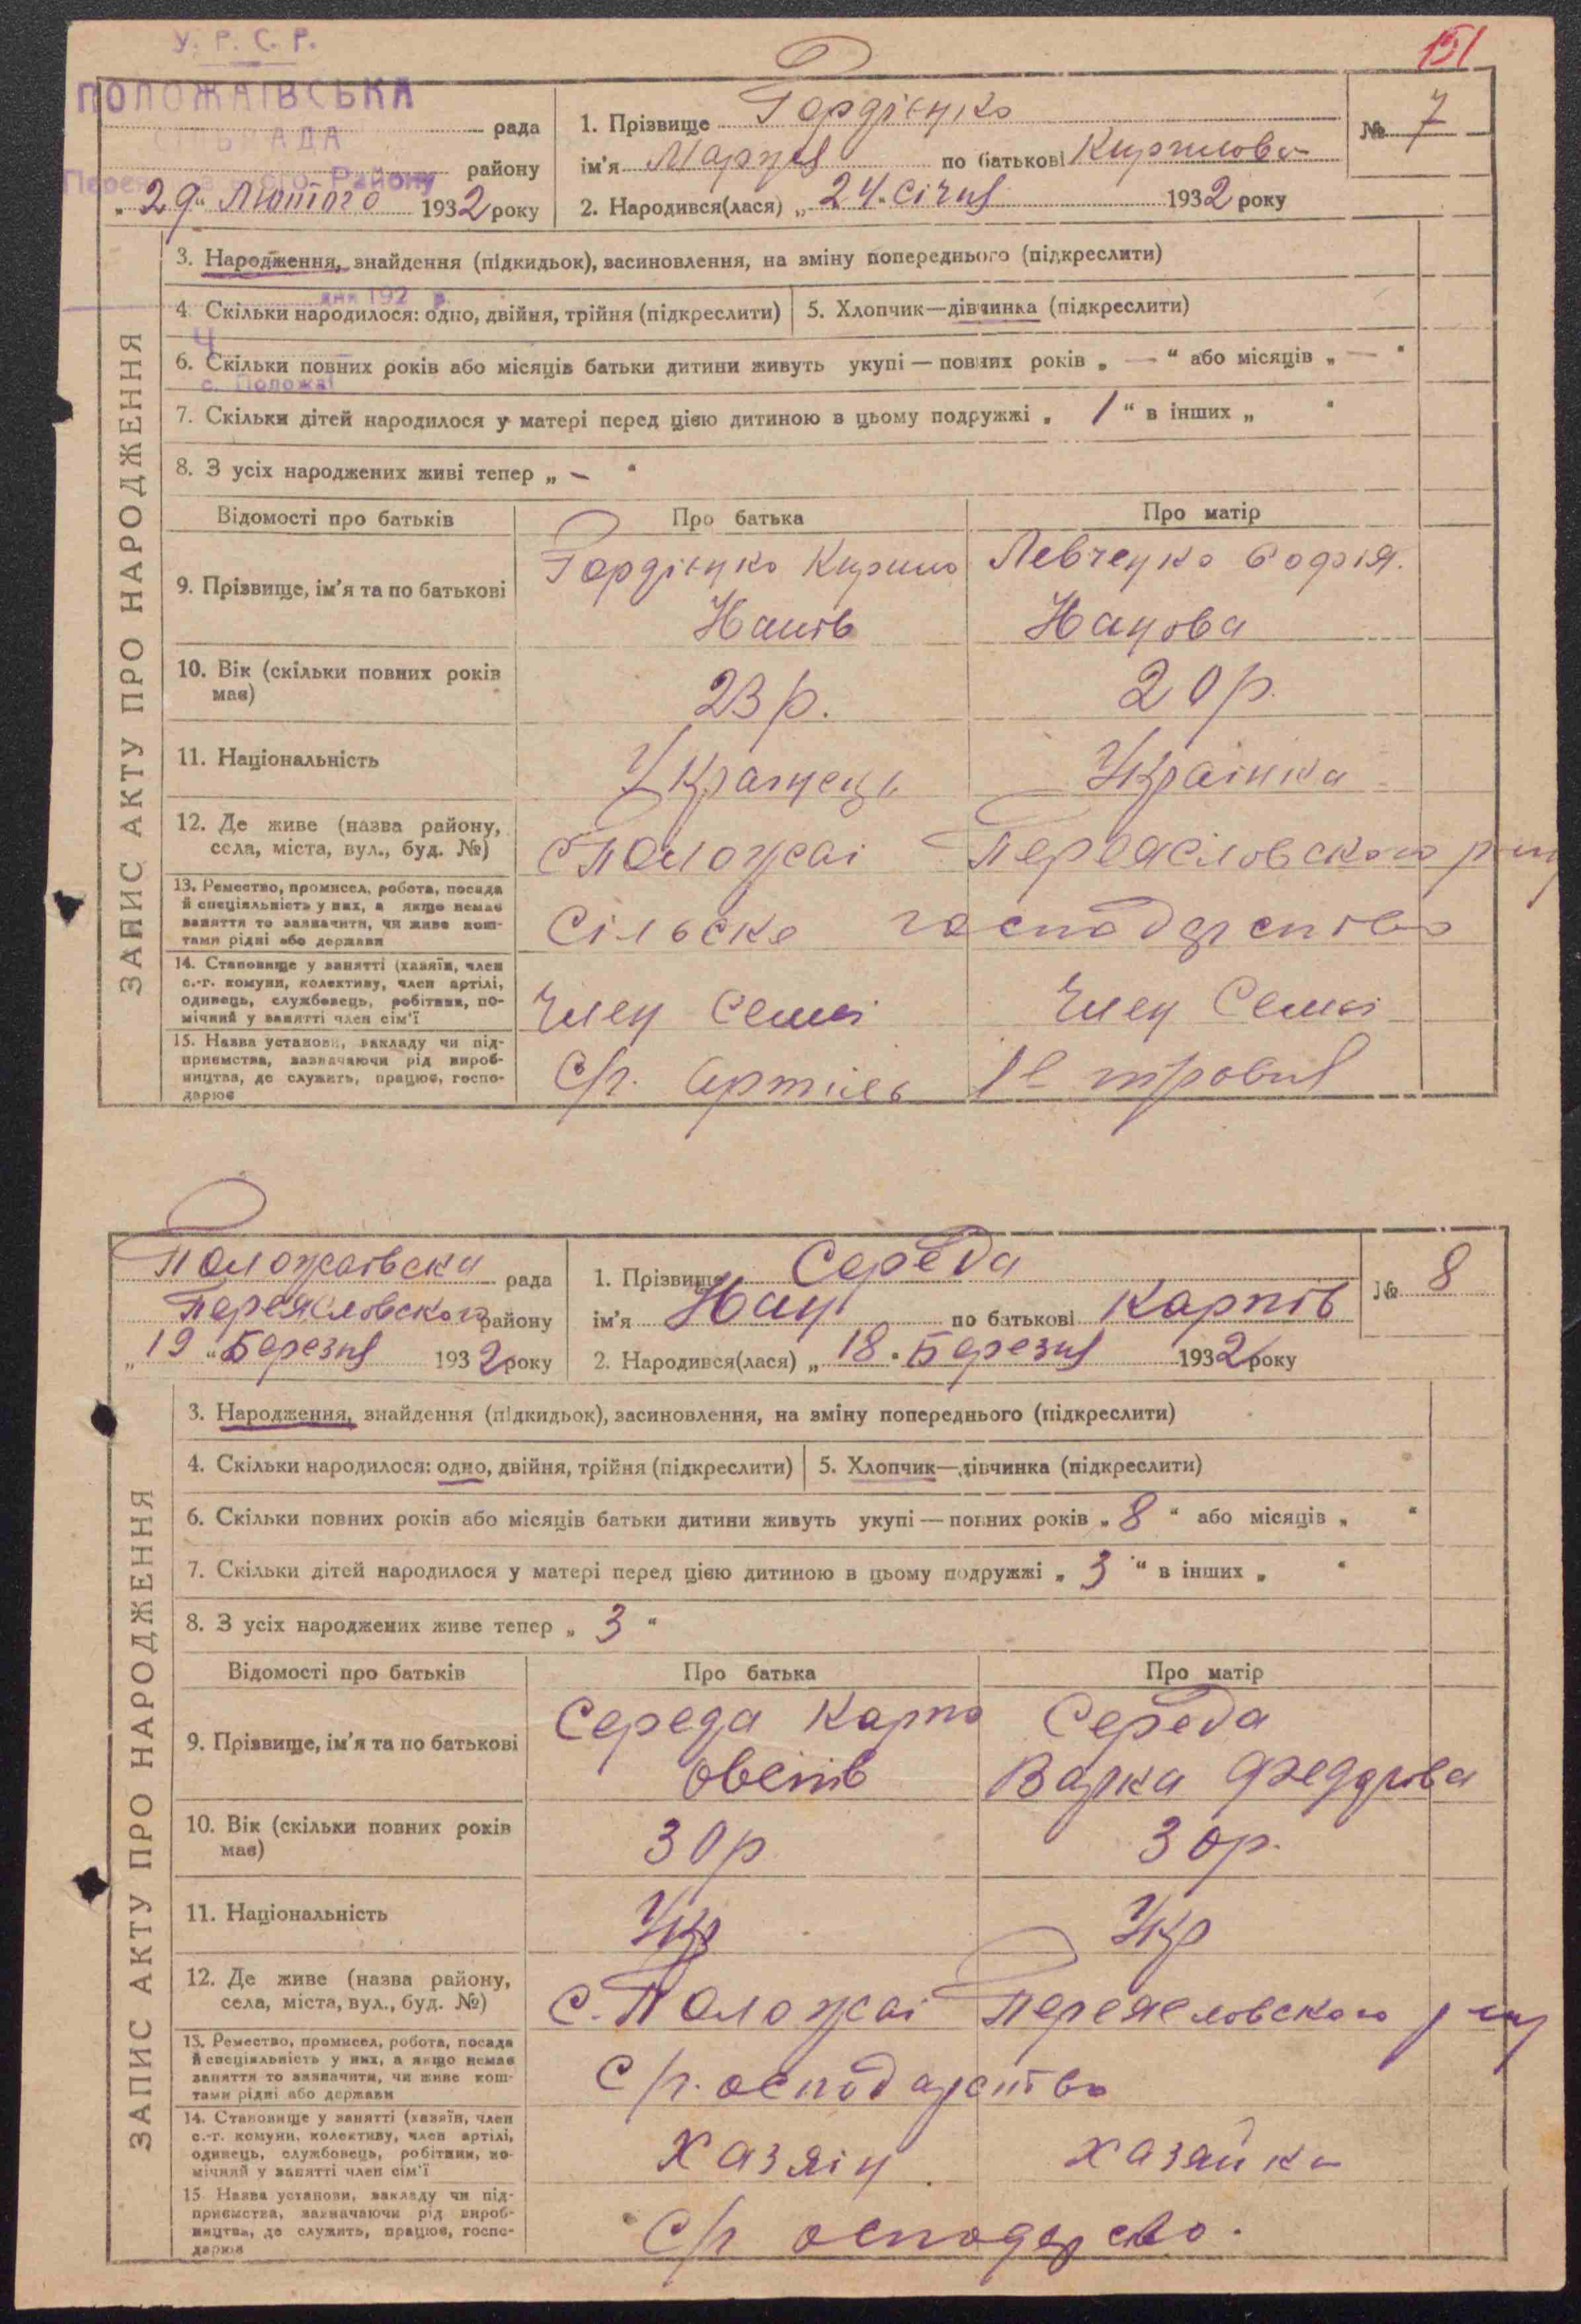 151
У. Р. С. Р.
ПОЛОЖАЇВСЬКА рада
СІЛЬРАДА
Району району
„29“ Лютого 1932 року
1. Прізвище Гордієнко
ім'я Марія по батькові Кирилова
2. Народився(лася) „24“ Січня 1932 року
№ 7
ЗАПИС АКТУ ПРО НАРОДЖЕННЯ
3. Народження, знайдення (підкидьок), засиновлення, на зміну попереднього (підкреслити)
дня 192 р.
4. Скільки народилося: одно, двійня, трійня (підкреслити) 5. Хлопчик—дівчинка (підкреслити)
Ч
6. Скільки повних років або місяців батьки дитини живуть укупі — повних років „ — “ або місяців „ — “
с. Положаї
7. Скільки дітей народилося у матері перед цією дитиною в цьому подружжі „ 1 “ в інших „ “
8. З усіх народжених живі тепер „ – “
Відомості про батьків Про батька Про матір
9. Прізвище, ім'я та по батькові
Гордієнко Кирило Левченко Софія.
Нанова
10. Вік (скільки повних років має) 23 р. 20 р.
11. Національність Українець Українка
12. Де живе (назва району, села, міста, вул., буд. №)
с Положаі Переясловского р-ну
13. Ремество, промисел, робота, посада й спеціяльність у них, а якщо немає заняття то зазначити, чи живе коштами рідні або держави
Сільске господарство
14. Становище у занятті (хазяїн, член с.-г. комуни, колективу, член артілі, одинець, службовець, робітник, помічний у занятті член сім'ї
Член Семьі Член Семьі
15. Назва установи, закладу чи підприємства, зазначаючи рід виробництва, де служить, працює, господарює
С/г. Артіль 1е травня
Положаівска рада
Переясловского району
„19“ Березня 1932 року
1. Прізвище Середа
ім'я Нан по батькові Карпів
2. Народився(лася) „18“ Березня 1932 року
№ 8
ЗАПИС АКТУ ПРО НАРОДЖЕННЯ
3. Народження, знайдення (підкидьок), засиновлення, на зміну попереднього (підкреслити)
4. Скільки народилося: одно, двійня, трійня (підкреслити) 5. Хлопчик—дівчинка (підкреслити)
6. Скільки повних років або місяців батьки дитини живуть укупі — повних років „ 8 “ або місяців „ “
7. Скільки дітей народилося у матері перед цією дитиною в цьому подружжі „ 3 “ в інших „ “
8. З усіх народжених живе тепер „ 3 “
Відомості про батьків Про батька Про матір
9. Прізвище, ім'я та по батькові
Середа Карпо Середа
Варка Феддрова
10. Вік (скільки повних років має) 30 р 30 р.
11. Національність Укр Укр
12. Де живе (назва району, села, міста, вул., буд. №)
с. Положаі Переясловского р-ну
13. Ремество, промисел, робота, посада й спеціяльність у них, а якщо немає заняття то зазначити, чи живе коштами рідні або держави
С/г. осподарство
14. Становище у занятті (хазяїн, член с.-г. комуни, колективу, член артілі, одинець, службовець, робітник, помічний у занятті член сім'ї
Хазяін Хазяйка
15 Назва установи, закладу чи підприємства, зазначаючи рід виробництва, де служить, працює, господарює
С/г осподарсво.